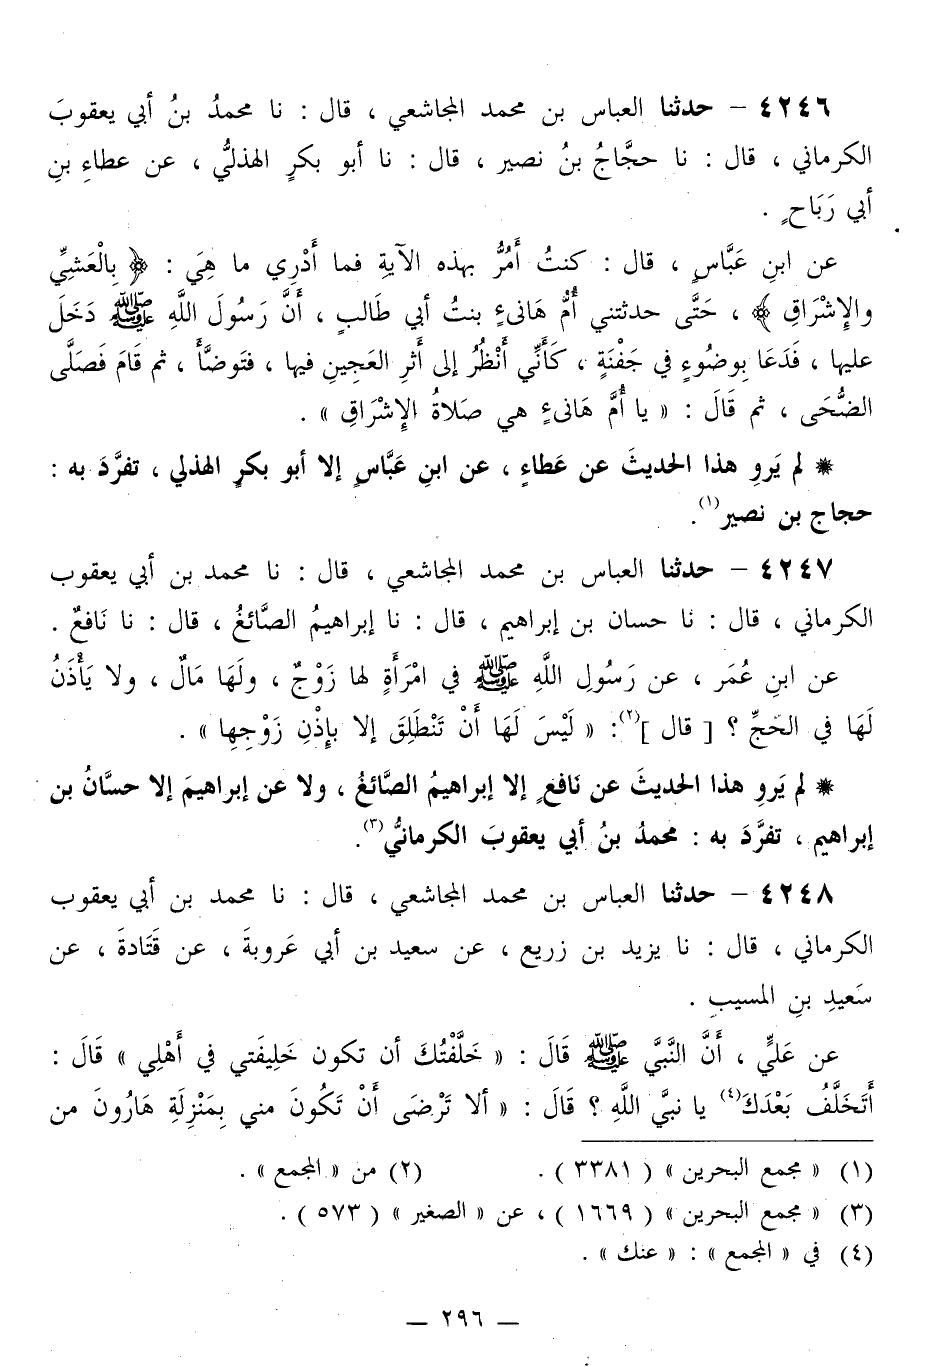 ٤٢٤٦ – حدثنا العباس بن محمد المجاشعي ، قال : نا محمدُ بنُ أبي يعقوبَ
الكرماني ، قال : نا حجَّاجُ بنُ نصير ، قال : نا أبو بكرٍ الهذليُّ ، عن عطاءِ بنِ
أبي رَبَاحٍ .
عن ابنِ عَبَّاسٍ ، قال : كنتُ أَمُرُّ بهذه الآيةِ فما أَدْرِي ما هِيَ : ﴿ بِالْعَشِيِّ
والإِشْرَاقِ ﴾ ، حَتَّى حدثتني أُمُّ هَانىءٍ بنتُ أبي طَالبٍ ، أَنَّ رَسُولَ اللَّهِ ﷺ دَخَلَ
عليها ، فَدَعَا بِوضُوءٍ في جَفْنَةٍ ، كَأَنِّي أَنْظُرُ إلى أَثرِ العَجِينِ فيها ، فتَوضَّأَ ، ثم قَامَ فَصَلَّى
الضُّحَى ، ثم قَالَ : « يا أُمَّ هَانىءٍ هي صَلاةُ الإِشْرَاقِ » .
* لم يَروِ هذا الحديثَ عن عَطاءٍ ، عن ابنِ عَبَّاسٍ إلا أبو بكرٍ الهذلي ، تفرَّدَ به :
حجاج بن نصير(١).
٤٢٤٧ – حدثنا العباس بن محمد المجاشعي ، قال : نا محمد بن أبي يعقوب
الكرماني ، قال : نا حسان بن إبراهيم ، قال : نا إبراهيمُ الصَّائغُ ، قال : نا نَافعٌ .
عن ابنِ عُمَر ، عن رَسُولِ اللَّهِ ﷺ في امْرَأَةٍ لها زَوْجٌ ، ولَهَا مَالٌ ، ولا يَأْذَنُ
لَهَا في الحَجِّ ؟ [ قال ](٢): « لَيْسَ لَهَا أَنْ تَنْطَلِقَ إلا بإِذْنِ زَوْجِها » .
* لم يَروِ هذا الحديثَ عن نَافعٍ إلا إبراهيمُ الصَّائغُ ، ولا عن إبراهيمَ إلا حسَّانُ بن
إبراهيم ، تفرَّدَ به : محمدُ بنُ أبي يعقوبَ الكرمانيُّ(٣).
٤٢٤٨ – حدثنا العباس بن محمد المجاشعي ، قال : نا محمد بن أبي يعقوب
الكرماني ، قال : نا يزيد بن زريع ، عن سعيد بن أبي عَروبةَ ، عن قَتَادةَ ، عن
سَعيدِ بنِ المسيبِ .
عن عَليٍّ ، أَنَّ النَّبيَّ ﷺ قَالَ : « خَلَّفْتُكَ أن تكون خَلِيفَتي في أَهْلِي » قَالَ :
أَتَخَلَّفُ بَعْدَكَ(٤) يا نبيَّ اللَّهِ ؟ قَالَ : « ألا تَرْضَى أَنْ تَكُونَ مني بِمَنْزِلَةِ هَارُونَ من
(١) « مجمع البحرين » ( ٣٣٨١ ) . (٢) من « المجمع » .
(٣) « مجمع البحرين » ( ١٦٦٩ ) ، عن « الصغير » ( ٥٧٣ ) .
(٤) في « المجمع » : « عنك » .
— ٢٩٦ —